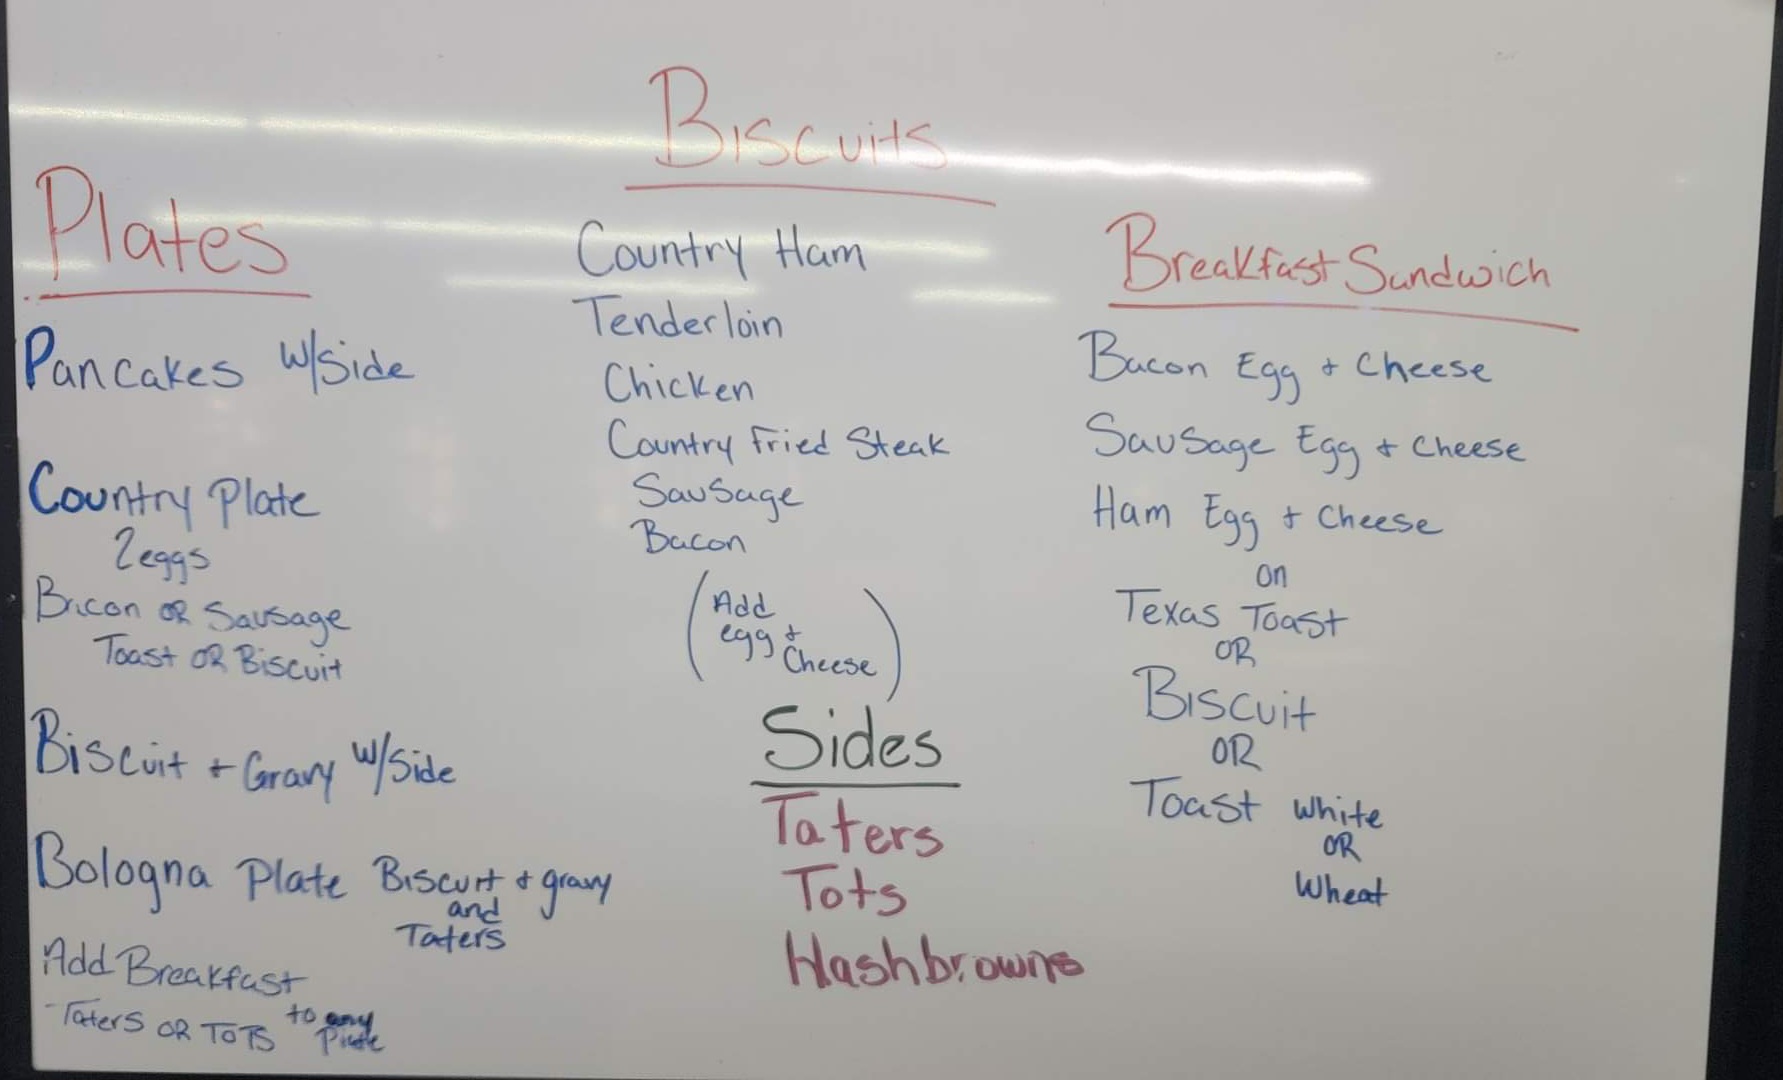 Plates
Pancakes w/side
Country Plate
2 eggs
Bacon OR Sausage
Toast OR Biscuit
Biscuit + Gravy w/side
Bologna Plate Biscuit + gravy
and
Taters
Add Breakfast
Taters OR TOTS to any
Plate
Biscuits
Country Ham
Tenderloin
Chicken
Country Fried Steak
Sausage
Bacon
(Add
egg +
Cheese)
Sides
Taters
Tots
Hashbrowns
Breakfast Sandwich
Bacon Egg + Cheese
Sausage Egg + Cheese
Ham Egg + Cheese
on
Texas Toast
OR
Biscuit
OR
Toast white
OR
Wheat